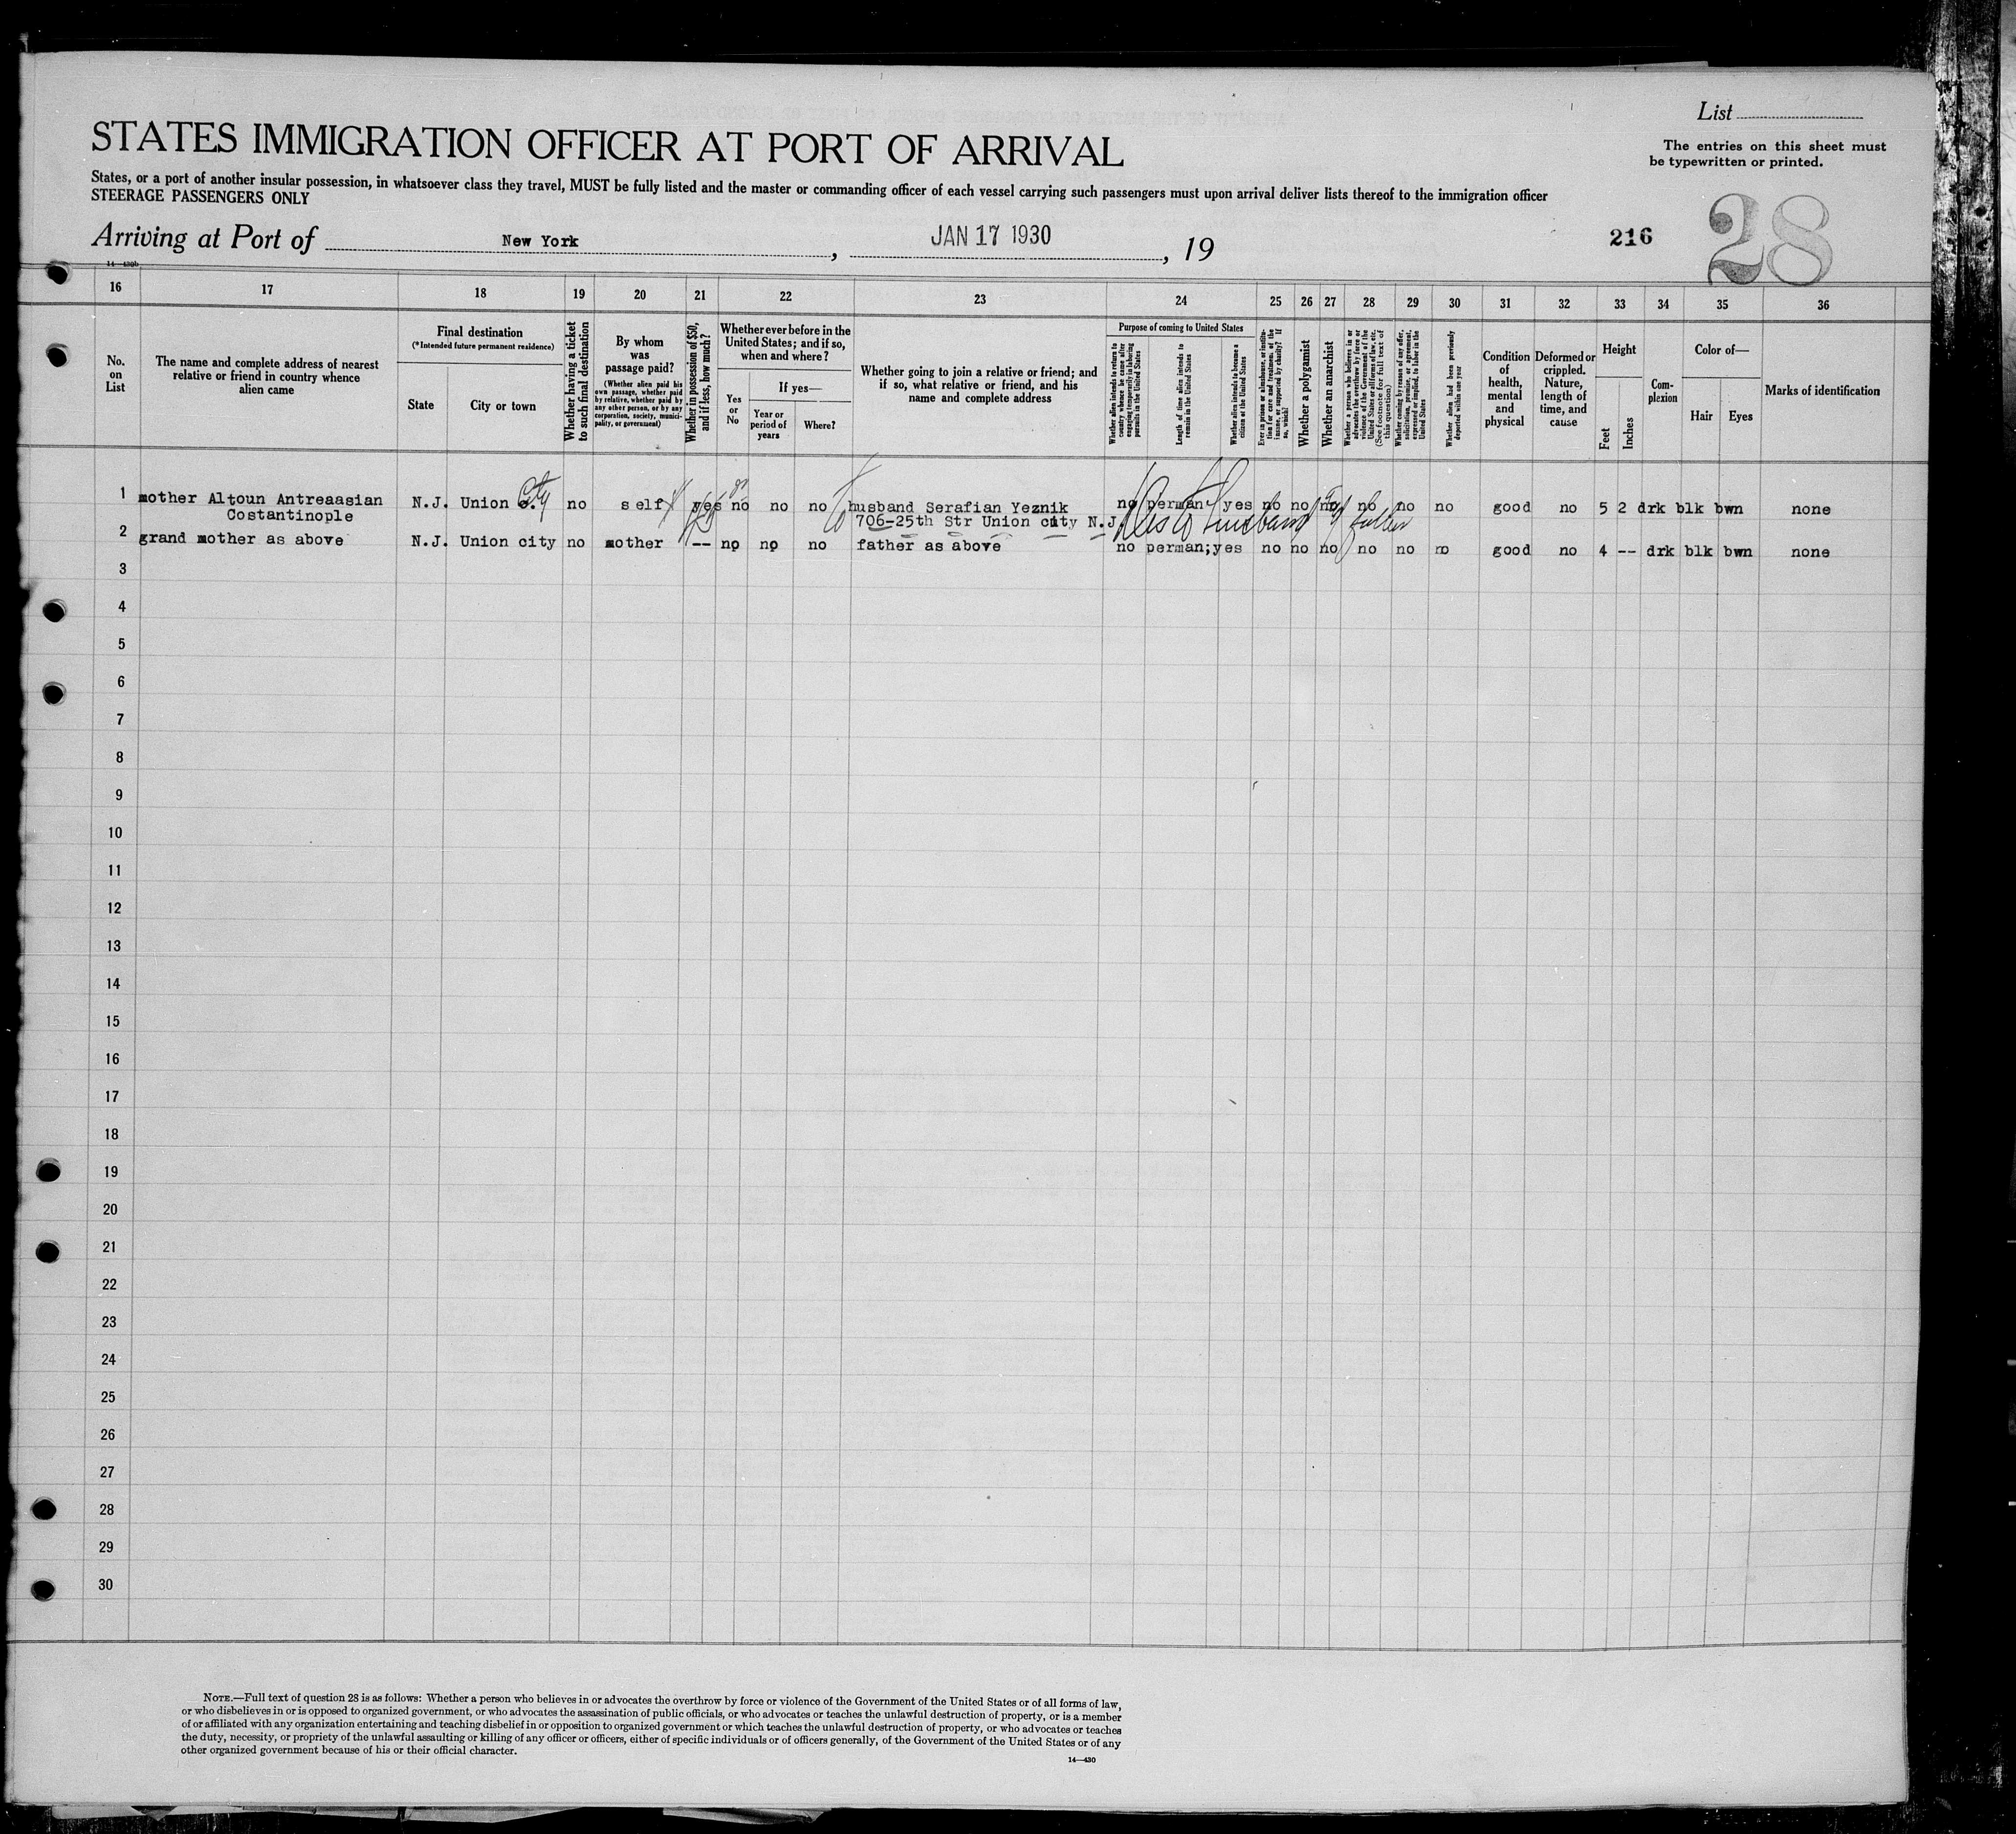 List
The entries on this sheet must
be typewritten or printed.
STATES IMMIGRATION OFFICER AT PORT OF ARRIVAL
States, or a port of another insular possession, in whatsoever class they travel, MUST be fully listed and the master or commanding officer of each vessel carrying such passengers must upon arrival deliver lists thereof to the immigration officer
STEERAGE PASSENGERS ONLY
Arriving at Port of New York, JAN 17 1930, 19
216 28
14—430b
16 17 18 19 20 21 22 23 24 25 26 27 28 29 30 31 32 33 34 35 36
No. on List
The name and complete address of nearest
relative or friend in country whence
alien came
Final destination
(*Intended future permanent residence)
State
City or town
Whether having a ticket
to such final destination
By whom
was
passage paid?
(Whether alien paid his
own passage, whether paid
by relative, whether paid by
any other person, or by any
corporation, society, munici-
pality, or government)
Whether in possession of $50,
and if less, how much?
Whether ever before in the
United States; and if so,
when and where?
Yes
or
No
If yes—
Year or
period of
years
Where?
Whether going to join a relative or friend; and
if so, what relative or friend, and his
name and complete address
Purpose of coming to United States
Whether alien intends to return to
country whence he came after
engaging temporarily in laboring
pursuits in the United States
Length of time alien intends to
remain in the United States
Whether alien intends to become a
citizen of the United States
Ever in prison or almshouse, or institu-
tion for care and treatment of the
insane, or supported by charity? If
so, which?
Whether a polygamist
Whether an anarchist
Whether a person who believes in or
advocates the overthrow by force or
violence of the Government of the
United States or all forms of law, etc.
(See footnote for full text of
this question)
Whether coming by reason of any offer,
solicitation, promise, or agreement,
expressed or implied, to labor in the
United States
Whether alien had been previously
deported within one year
Condition
of
health,
mental
and
physical
Deformed or
crippled.
Nature,
length of
time, and
cause
Height
Feet
Inches
Com-
plexion
Color of—
Hair
Eyes
Marks of identification
1 mother Altoun Antreaasian N.J. Union City no self yes no no no husband Serafian Yeznik no perman yes no no no no no no good no 5 2 drk blk bwn none
Costantinople 706-25th Str Union city N.J
2 grand mother as above N.J. Union city no mother -- no no no father as above no perman;yes no no no no no no good no 4 -- drk blk bwn none
3
4
5
6
7
8
9
10
11
12
13
14
15
16
17
18
19
20
21
22
23
24
25
26
27
28
29
30
NOTE.—Full text of question 28 is as follows: Whether a person who believes in or advocates the overthrow by force or violence of the Government of the United States or of all forms of law,
or who disbelieves in or is opposed to organized government, or who advocates the assassination of public officials, or who advocates or teaches the unlawful destruction of property, or is a member
of or affiliated with any organization entertaining and teaching disbelief in or opposition to organized government or which teaches the unlawful destruction of property, or who advocates or teaches
the duty, necessity, or propriety of the unlawful assaulting or killing of any officer or officers, either of specific individuals or of officers generally, of the Government of the United States or of any
other organized government because of his or their official character.
14—430